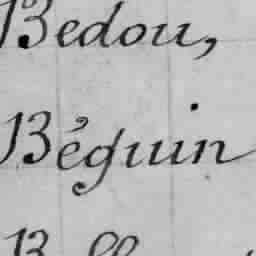 Bedou,
Béguin